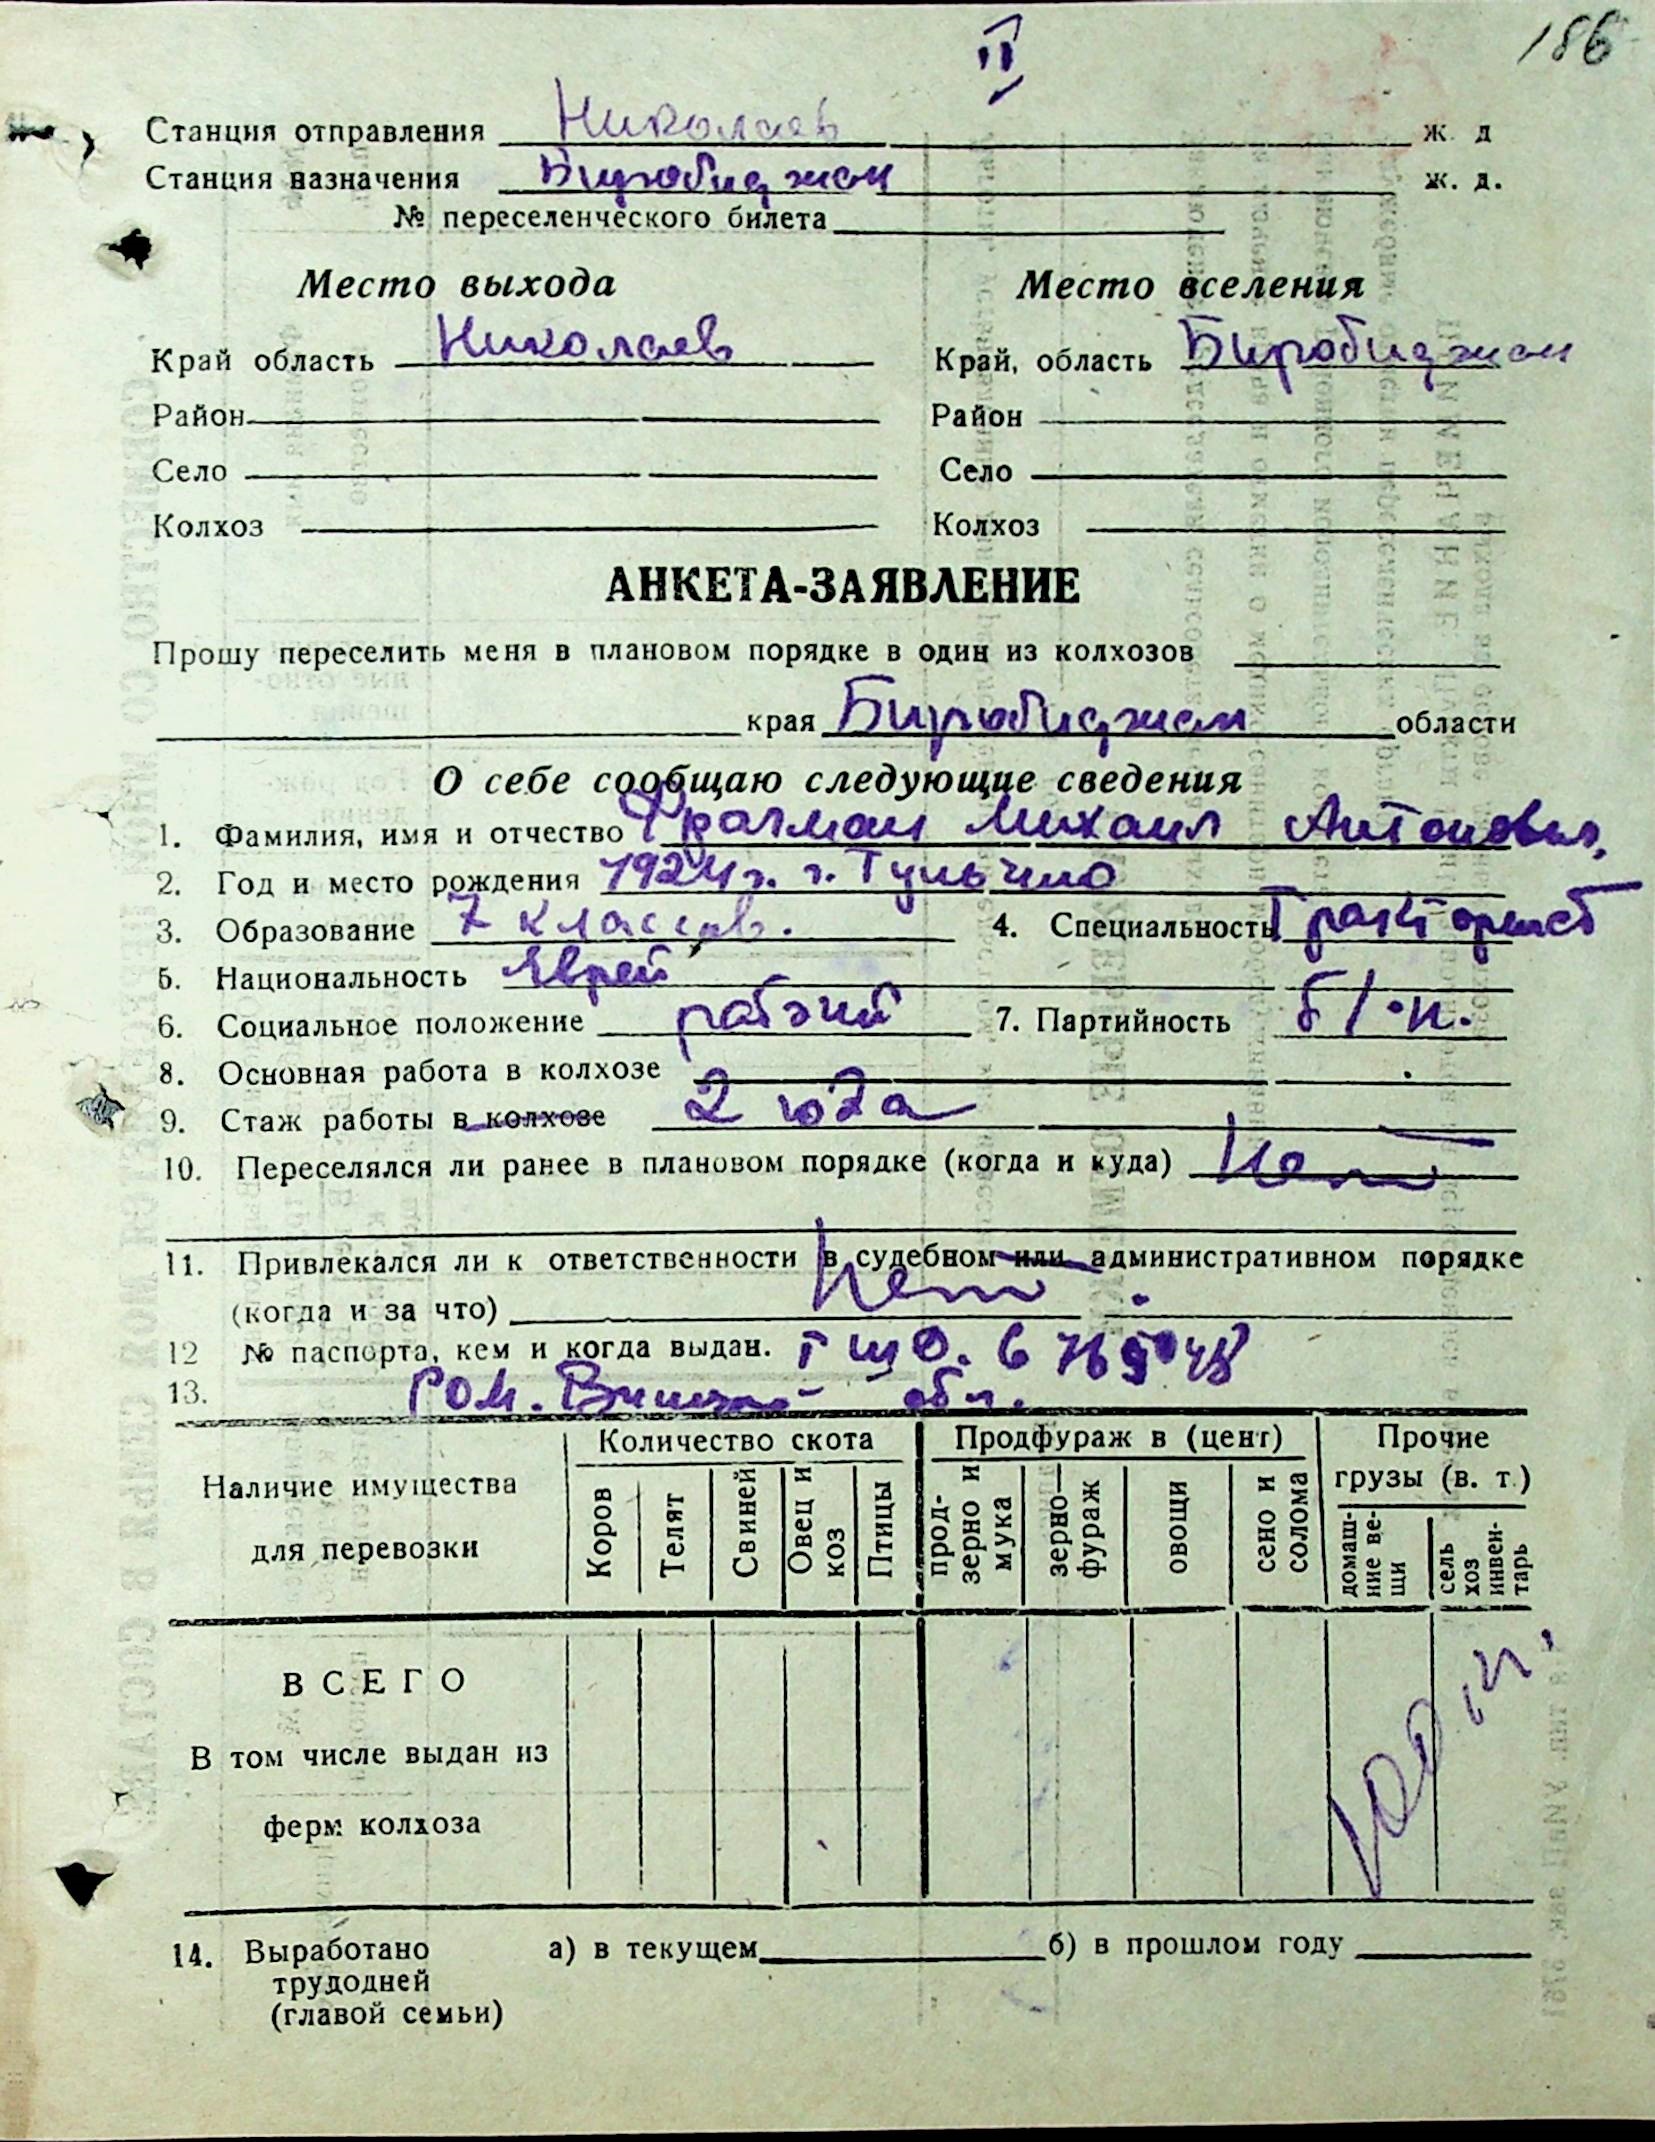 II
186
Станция отправления Николаев ж. д
Станция назначения Биробиджан ж. д.
№ переселенческого билета
Место выхода Место вселения
Край область Николаев Край, область Биробиджан
Район Район
Село Село
Колхоз Колхоз
АНКЕТА-ЗАЯВЛЕНИЕ
Прошу переселить меня в плановом порядке в один из колхозов
края Биробиджан области
О себе сообщаю следующие сведения
1. Фамилия, имя и отчество Михаил Антонович
2. Год и место рождения 1924 г. г. Тульчино
3. Образование 7 классов. 4. Специальность Тракторист
5. Национальность Еврей
6. Социальное положение рабочий 7. Партийность б/п.
8. Основная работа в колхозе
9. Стаж работы в колхозе 2 года
10. Переселялся ли ранее в плановом порядке (когда и куда) Нет
11. Привлекался ли к ответственности в судебном или административном порядке
(когда и за что) Нет.
12 № паспорта, кем и когда выдан.
13. РОМ. обл.
Наличие имущества для перевозки Количество скота Продфураж в (цент) Прочие грузы (в. т.)
Коров Телят Свиней Овец и коз Птицы прод-зерно и мука зерно—фураж овощи сено и солома домаш-ние ве-щи сель хоз инвен-тарь
ВСЕГО
В том числе выдан из
ферм колхоза
14. Выработано а) в текущем б) в прошлом году
трудодней
(главой семьи)